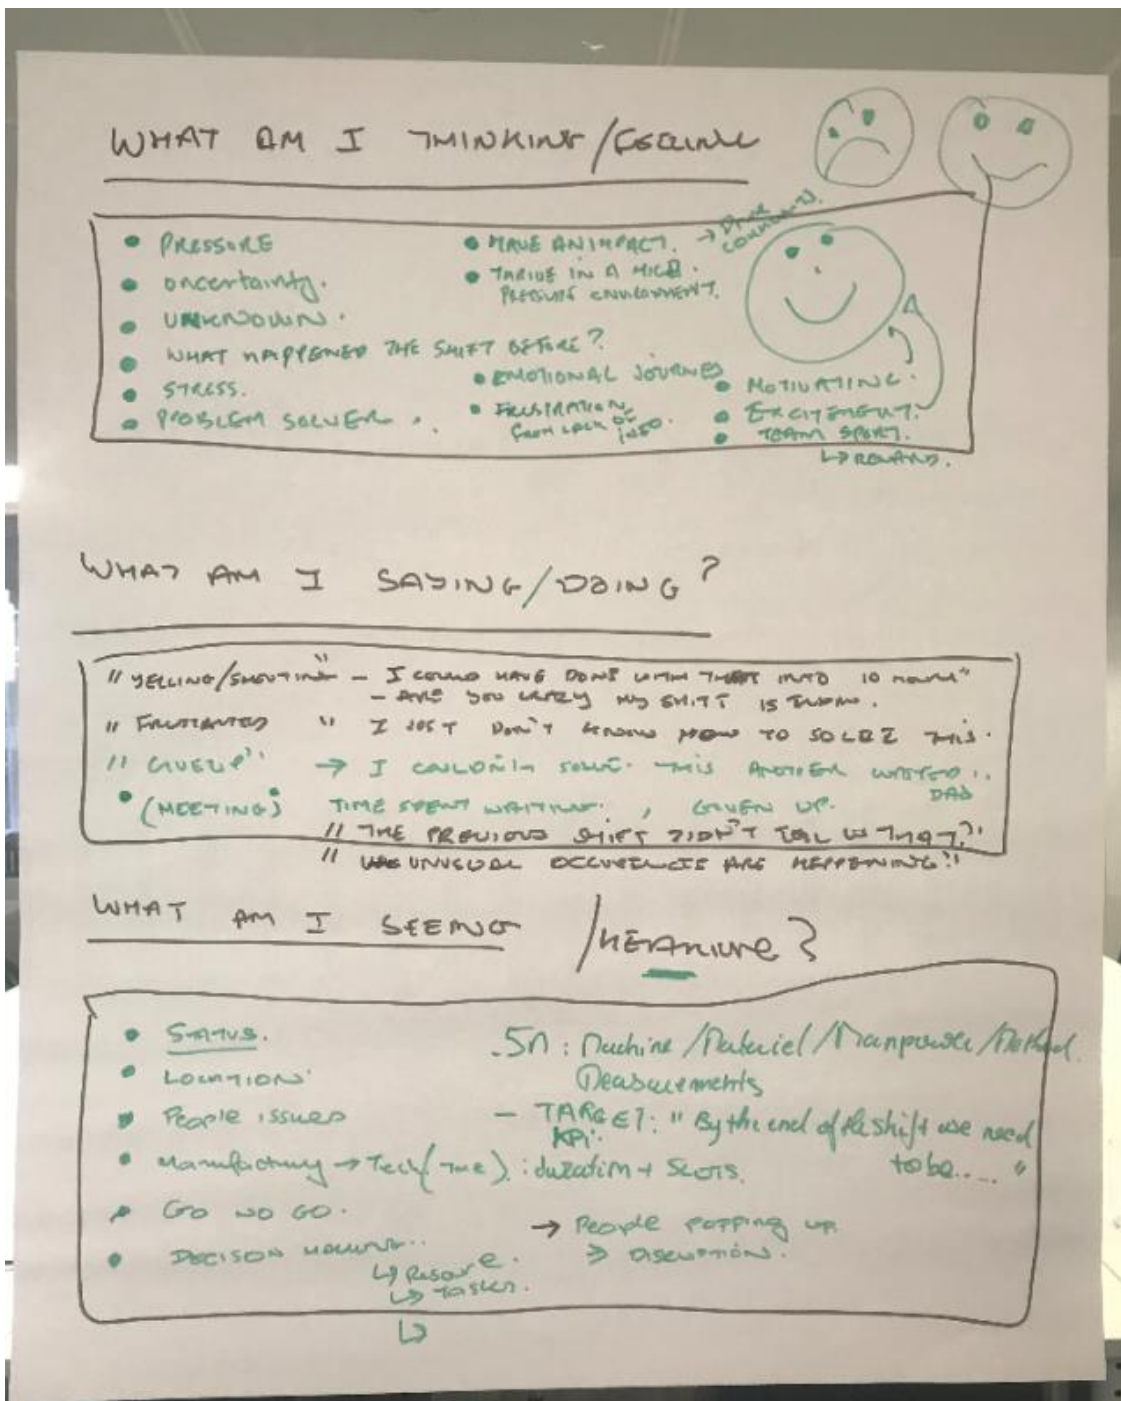 WHAT AM I THINKING/FEELING
• PRESSURE
• uncertainty.
• UNKNOWN.
• WHAT HAPPENED THE SHIFT BEFORE?
• STRESS.
• PROBLEM SOLVER
• HAVE AN IMPACT.
• THRIVE IN A HIGH
PRESSURE ENVIRONMENT.
• EMOTIONAL JOURNEY
• FRUSTRATION
FROM LACK OF
INFO.
• MOTIVATING.
• EXCITEMENT.
• TEAM SPORT.
↳ REWARD.
WHAT AM I SAYING/DOING?
"YELLING/SHOUTING" – I COULD HAVE DONE WITH THAT INTO 10 HOURS"
– ARE YOU CRAZY MY SHIFT IS
"FRUSTRATED" I JUST DON'T KNOW HOW TO SOLVE THIS.
"GIVE UP" → I COULDN'T SOLVE THIS ANOTHER WASTED..
DAY
• (MEETING) TIME SPENT WAITING. , GIVEN UP.
"THE PREVIOUS SHIFT DIDN'T TELL US THAT?"
"UNUSUAL OCCURENCES ARE HAPPENING!"
WHAT AM I SEEING /HEARING?
• STATUS.
• LOCATION
• People issues
• Manufacturing → Tech (TME). : duration + SLOTS.
• GO NO GO.
• DECISON MAKING..
↳ Resource.
↳ Tasks.
↳
.5M : Machine/Materiel/Manpower/Method.
Measurements
– TARGET: "By the end of the shift we need
KPI. to be.... "
→ People popping up.
⇒ DISRUPTION.